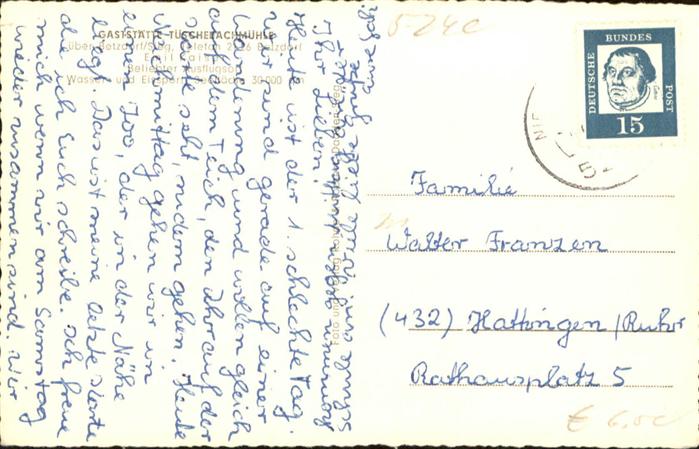 GASTSTÄTTE TÜSCHEBACHSMÜHLE
über Betzdorf/Sieg, Telefon 2526 Betzdorf
Beliebter Ausflugsort
Ihr Lieben!
Heute ist der 1. schlechte Tag.
Wir sind gerade auf einer
Wanderung und wollen gleich
auf dem Teich, den Ihr auf der
Karte seht, rudern gehen. Heute
Nachmittag gehen wir in
einen Zoo, der in der Nähe
liegt. Das ist meine letzte Karte
die ich Euch schreibe. Ich freue
mich wenn wir am Samstag
wieder zusammen sind. Wir
Viele liebe Grüße
Eure Gabi
DEUTSCHE BUNDES POST
15
Familie
Walter Franzen
(432) Hattingen/Ruhr
Rathausplatz 5
524c
€ 6,00